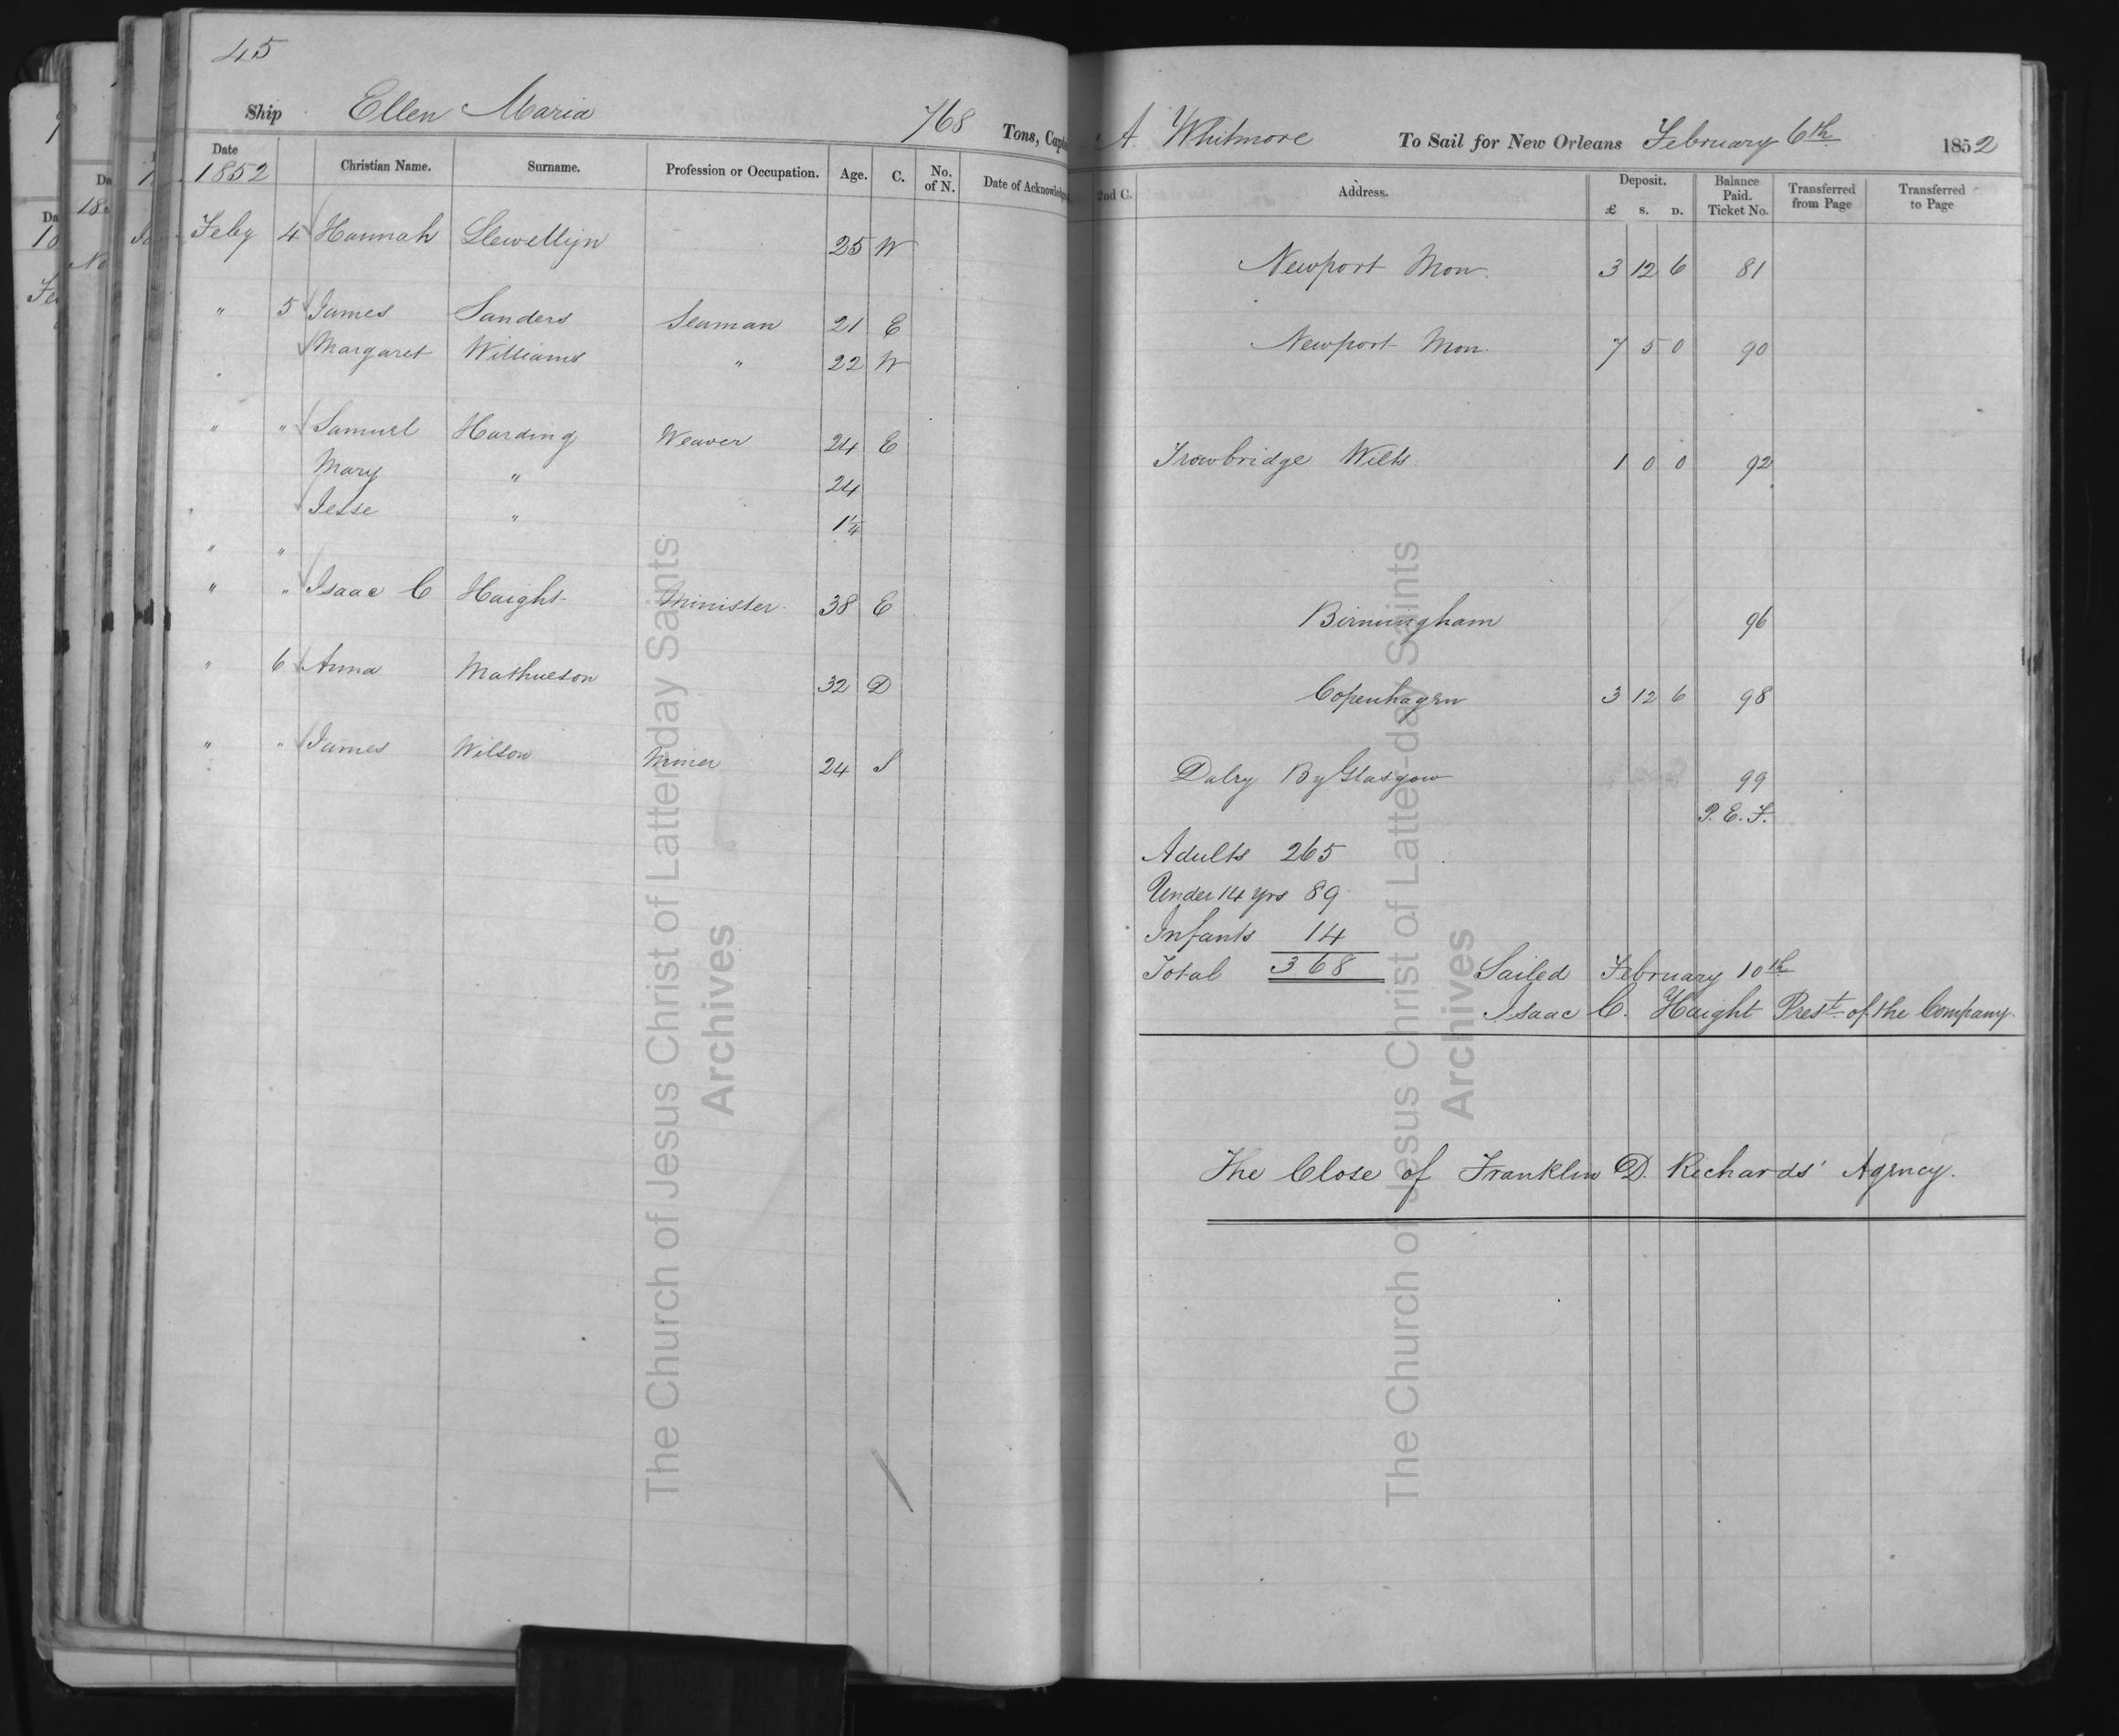 45
Ship Ellen Maria 768 Tons, Capt
A. Whitmore To Sail for New Orleans February 6th 1852
Date 1852 Christian Name. Surname. Profession or Occupation. Age. C. No. of N. Date of Acknowledgment
2nd C. Address. Deposit. £ S. D. Balance Paid. Ticket No. Transferred from Page Transferred to Page
Feby 4 Hannah Llewellyn 25 W Newport Mon. 3 12 6 81
" 5 James Sanders Seaman 21 E Newport Mon. 7 5 0 90
Margaret Williams " 22 W
" " Samuel Harding Weaver 24 E Trowbridge Wilts. 1 0 0 92
Mary " 24
Jesse " 1¼
" "
" " Isaac C Haight Minister 38 E Birmingham 96
" 6 Anna Mathueson 32 D Copenhagen 3 12 6 98
" " James Wilson Miner 24 S Dalry By Glasgow 99
P. E. F.
Adults 265
Under 14 yrs 89
Infants 14
Total 368 Sailed February 10th
Isaac C. Haight Prest of the Company.
The Close of Franklin D. Richards' Agency.
The Church of Jesus Christ of Latter-day Saints
Archives
The Church of Jesus Christ of Latter-day Saints
Archives